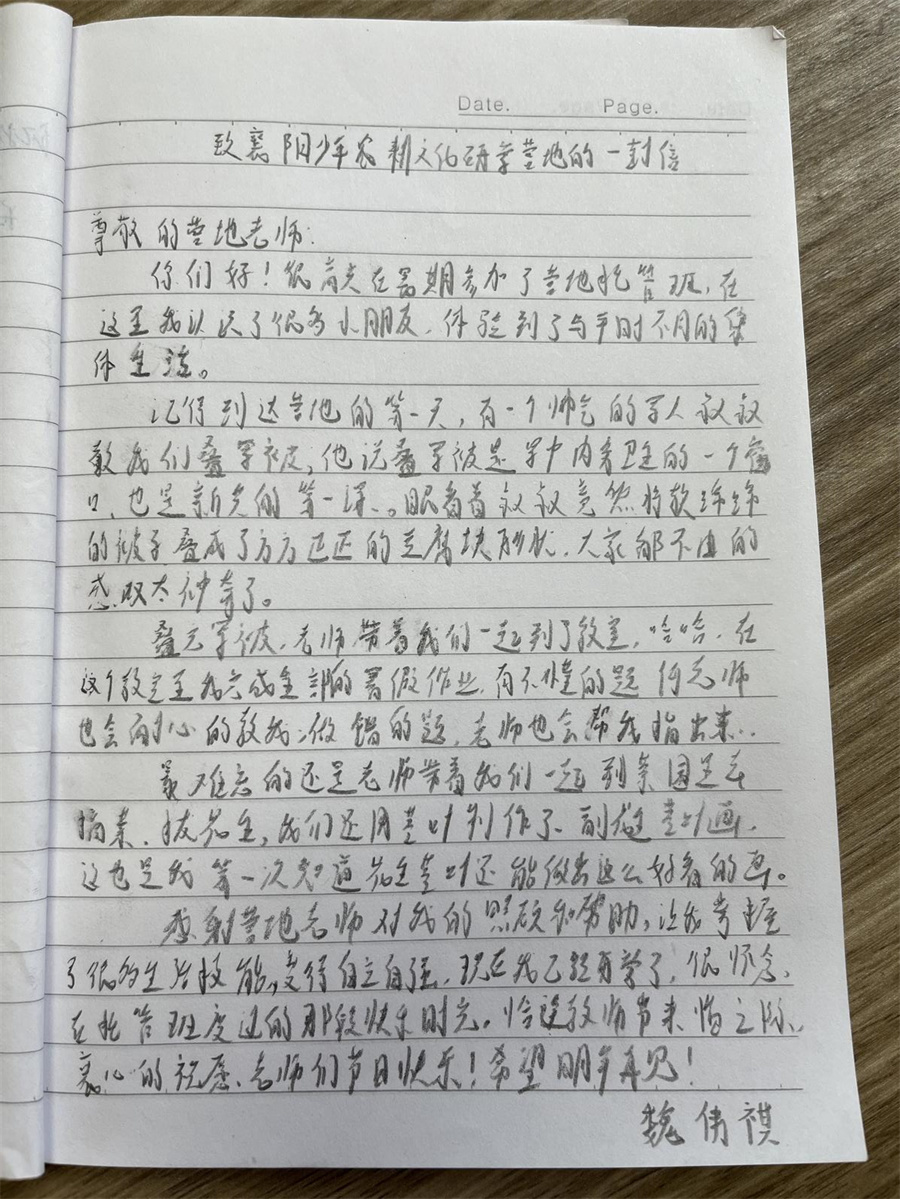 Date.            Page.
致襄阳少年农耕文化研学营地的一封信
尊敬的营地老师:
你们好!很高兴在暑期参加了营地托管班,在
这里我认识了很多小朋友,体验到了与平时不同的集
体生活。
记得到达营地的第一天,有一个帅气的军人叔叔
教我们叠军被,他说叠军被是军中内务卫生的一个窗
口,也是新兵的第一课。眼看着叔叔竟然将软绵绵
的被子叠成了方方正正的豆腐块形状,大家都不由的
感叹太神奇了。
叠完军被,老师带着我们一起到了教室,哈哈,在
这个教室里我完成全部的暑假作业,有不懂的题 何老师
也会耐心的教我,做错的题,老师也会帮我指出来..
最难忘的还是老师带着我们一起到菜园里去
摘菜,拔花生,我们还用茎叶制作了一副花生茎叶画,
这也是我第一次知道花生茎叶还能做出这么好看的画。
感谢营地老师对我的照顾和帮助,让我掌握
了很多生活技能,变得自立自强,现在我已经开学了,很怀念,
在托管班度过的那段快乐时光。恰逢教师节来临之际,
衷心的祝愿,老师们节日快乐!希望明年再见!
魏伟祺